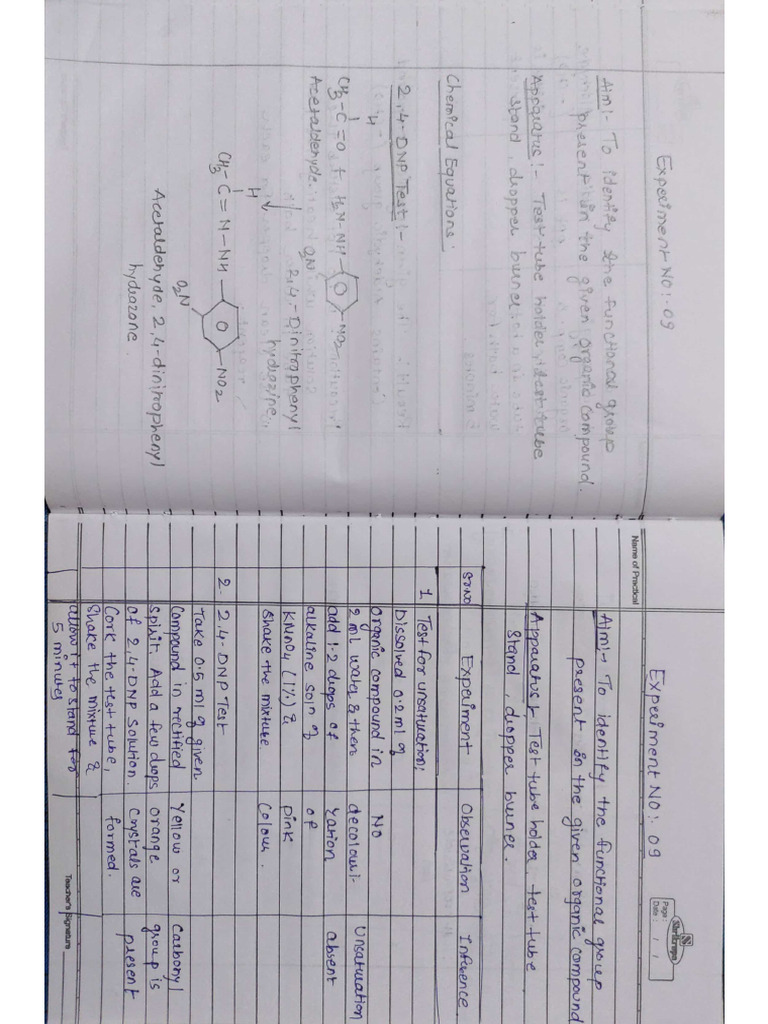 Experiment NO:- 09
Aim:- To identify the functional group
present in the given organic compound.
Apparatus:- Test tube holder, test tube
stand, dropper burner
Chemical Equations:
2,4-DNP Test:-
H
CH3-C=O + H2N-NH- NO2
O2N
Acetaldehyde 2,4-Dinitrophenyl
hydrazine
H
CH3-C=N-NH- NO2
O2N
Acetaldehyde, 2,4-dinitrophenyl
hydrazone.
Shri Krupa
Page :
Date : / /
Experiment NO:. 09
Name of Practical
Aim:- To identify the functional group
present in the given organic compound
Apparatus, Test tube holder, test tube
Stand, dropper burner.
Sr.No Experiment Observation Inference
1. Test for unsaturation:
Dissolved 0.2 ml of
organic compound in No Unsaturation
2 ml water & then decolouri- absent
add 1-2 drops of zation
alkaline soln of of
KMnO4 (1%) & pink
Shake the mixture Colour.
2. 2,4-DNP Test
Take 0.5 ml of given
Compound in rectified Yellow or Carbonyl
spirit. Add a few drops orange group is
of 2,4-DNP Solution. Crystals are present
Cork the test tube, formed.
Shake the mixture &
allow it to stand for
5 minutes
Teacher's Signature